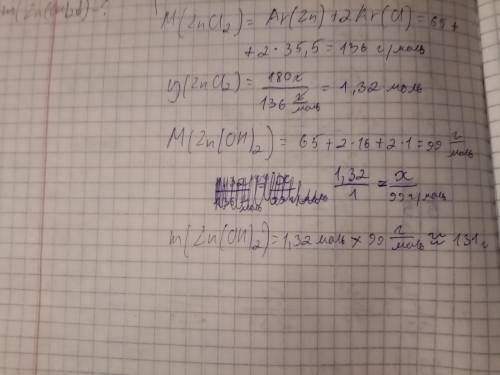 M(ZnCl₂) = Ar(Zn) + 2Ar(Cl) = 65 +
+ 2 · 35,5 = 136 г/моль
υ(ZnCl₂) = 180г / 136 г/моль = 1,32 моль
M(Zn(OH)₂) = 65 + 2 · 16 + 2 · 1 = 99 г/моль
1,32 / 1 = x / 99 г/моль
m(Zn(OH)₂) = 1,32 моль × 99 г/моль ≈ 131 г